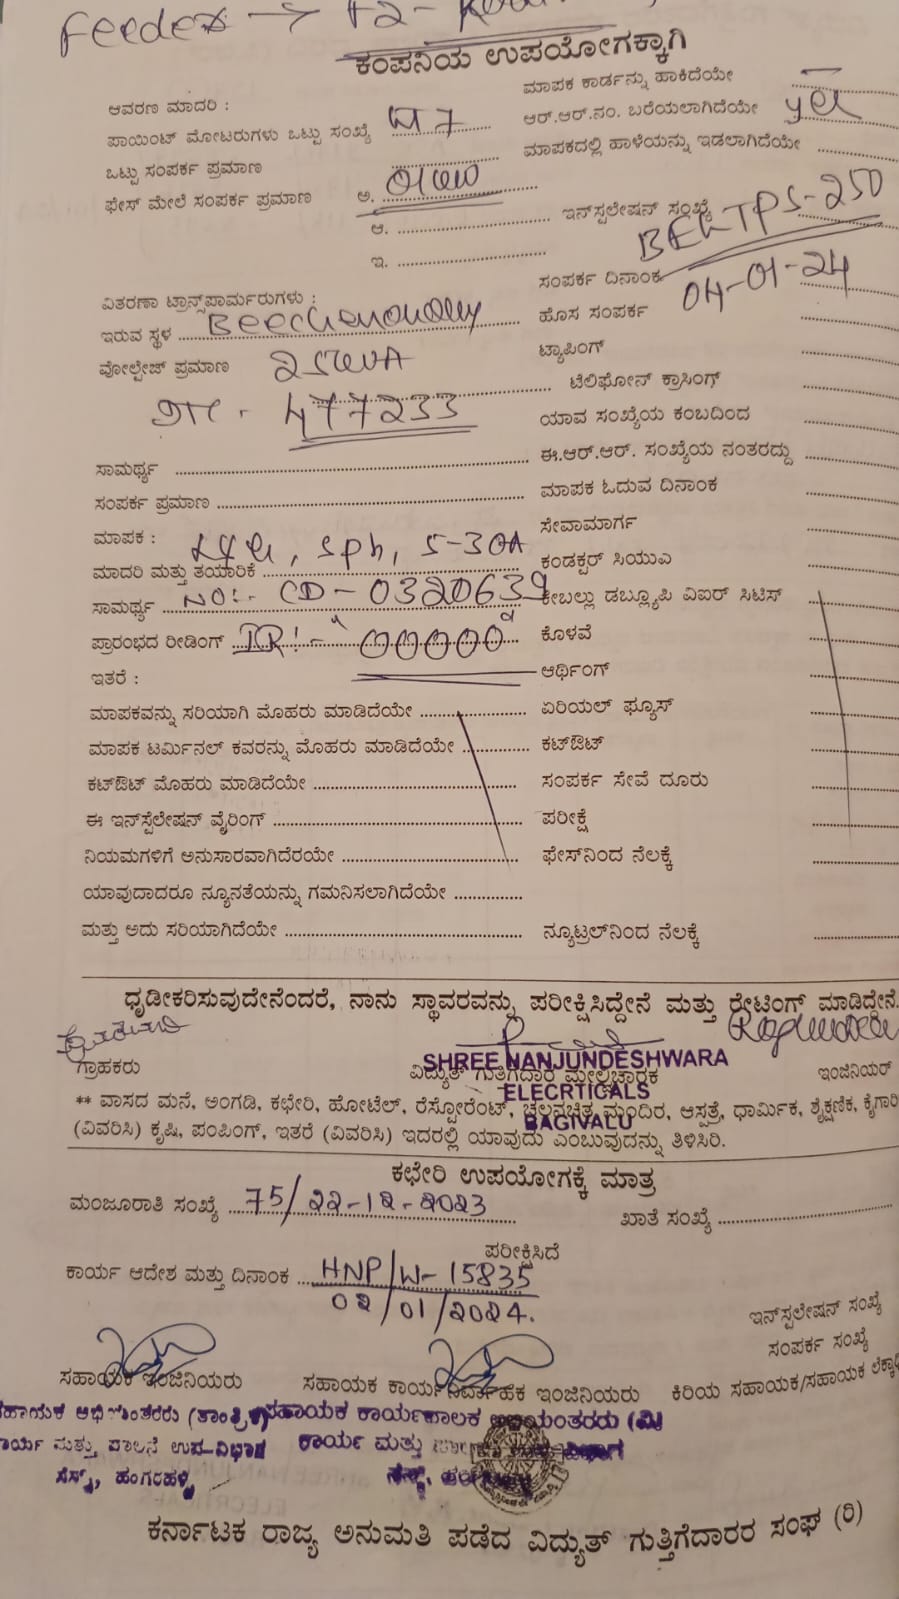 Feeder → F2-
ಕಂಪನಿಯ ಉಪಯೋಗಕ್ಕಾಗಿ
ಆವರಣ ಮಾದರಿ :
ಮಾಪಕ ಕಾರ್ಡನ್ನು ಹಾಕಿದೆಯೇ
ಪಾಯಿಂಟ್ ಮೋಟರುಗಳು ಒಟ್ಟು ಸಂಖ್ಯೆ
ಆರ್.ಆರ್.ನಂ. ಬರೆಯಲಾಗಿದೆಯೇ yes
ಒಟ್ಟು ಸಂಪರ್ಕ ಪ್ರಮಾಣ
ಮಾಪಕದಲ್ಲಿ ಹಾಳೆಯನ್ನು ಇಡಲಾಗಿದೆಯೇ
ಫೇಸ್ ಮೇಲೆ ಸಂಪರ್ಕ ಪ್ರಮಾಣ ಅ.
ಆ. ಇನ್‌ಸ್ಪಲೇಷನ್ ಸಂಖ್ಯೆ
ಇ.
ಸಂಪರ್ಕ ದಿನಾಂಕ 04-01-24
ವಿತರಣಾ ಟ್ರಾನ್ಸ್‌ಪಾರ್ಮರುಗಳು :
ಇರುವ ಸ್ಥಳ
ಹೊಸ ಸಂಪರ್ಕ
ವೋಲ್ಟೇಜ್ ಪ್ರಮಾಣ 25KVA
ಟ್ಯಾಪಿಂಗ್
477233
ಟೆಲಿಫೋನ್ ಕ್ರಾಸಿಂಗ್
ಯಾವ ಸಂಖ್ಯೆಯ ಕಂಬದಿಂದ
ಸಾಮರ್ಥ್ಯ
ಈ.ಆರ್.ಆರ್. ಸಂಖ್ಯೆಯ ನಂತರದ್ದು
ಸಂಪರ್ಕ ಪ್ರಮಾಣ
ಮಾಪಕ ಓದುವ ದಿನಾಂಕ
ಮಾಪಕ :
ಸೇವಾಮಾರ್ಗ
ಮಾದರಿ ಮತ್ತು ತಯಾರಿಕೆ L&G, sph, 5-30A
ಕಂಡಕ್ಟರ್ ಸಿಯುಎ
ಸಾಮರ್ಥ್ಯ NO:- CD-0320639
ಕೇಬಲ್ಲು ಡಬ್ಲ್ಯೂಪಿ ವಿಐರ್ ಸಿಟಿಸ್
ಪ್ರಾರಂಭದ ರೀಡಿಂಗ್ IR:- "00000"
ಕೊಳವೆ
ಇತರೆ :
ಆರ್ಥಿಂಗ್
ಮಾಪಕವನ್ನು ಸರಿಯಾಗಿ ಮೊಹರು ಮಾಡಿದೆಯೇ
ಏರಿಯಲ್ ಫ್ಯೂಸ್
ಮಾಪಕ ಟರ್ಮಿನಲ್ ಕವರನ್ನು ಮೊಹರು ಮಾಡಿದೆಯೇ
ಕಟ್‌ಔಟ್
ಕಟ್‌ಔಟ್ ಮೊಹರು ಮಾಡಿದೆಯೇ
ಸಂಪರ್ಕ ಸೇವೆ ದೂರು
ಈ ಇನ್‌ಸ್ಪೆಲೇಷನ್ ವೈರಿಂಗ್
ಪರೀಕ್ಷೆ
ನಿಯಮಗಳಿಗೆ ಅನುಸಾರವಾಗಿದೆರಯೇ
ಫೇಸ್‌ನಿಂದ ನೆಲಕ್ಕೆ
ಯಾವುದಾದರೂ ನ್ಯೂನತೆಯನ್ನು ಗಮನಿಸಲಾಗಿದೆಯೇ
ಮತ್ತು ಅದು ಸರಿಯಾಗಿದೆಯೇ
ನ್ಯೂಟ್ರಲ್‌ನಿಂದ ನೆಲಕ್ಕೆ
ಧೃಡೀಕರಿಸುವುದೇನೆಂದರೆ, ನಾನು ಸ್ಥಾವರವನ್ನು ಪರೀಕ್ಷಿಸಿದ್ದೇನೆ ಮತ್ತು ರೇಟಿಂಗ್ ಮಾಡಿದ್ದೇನೆ.
SHREE NANJUNDESHWARA
ಗ್ರಾಹಕರು ವಿದ್ಯುತ್ ಗುತ್ತಿಗೆದಾರ ಮೇಲ್ವಿಚಾರಕ ಇಂಜಿನಿಯರ್
ELECRTICALS
** ವಾಸದ ಮನೆ, ಅಂಗಡಿ, ಕಛೇರಿ, ಹೋಟೆಲ್, ರೆಸ್ಟೋರೆಂಟ್, ಚಲನಚಿತ್ರ ಮಂದಿರ, ಆಸ್ಪತ್ರೆ, ಧಾರ್ಮಿಕ, ಶೈಕ್ಷಣಿಕ, ಕೈಗಾರಿ
BAGIVALU
(ವಿವರಿಸಿ) ಕೃಷಿ, ಪಂಪಿಂಗ್, ಇತರೆ (ವಿವರಿಸಿ) ಇದರಲ್ಲಿ ಯಾವುದು ಎಂಬುವುದನ್ನು ತಿಳಿಸಿರಿ.
ಕಛೇರಿ ಉಪಯೋಗಕ್ಕೆ ಮಾತ್ರ
ಮಂಜೂರಾತಿ ಸಂಖ್ಯೆ 75/22-12-2023 ಖಾತೆ ಸಂಖ್ಯೆ
ಪರೀಕ್ಷಿಸಿದೆ
ಕಾರ್ಯ ಆದೇಶ ಮತ್ತು ದಿನಾಂಕ HNP/W-15835
02/01/2024.
ಇನ್‌ಸ್ಪಲೇಷನ್ ಸಂಖ್ಯೆ
ಸಂಪರ್ಕ ಸಂಖ್ಯೆ
ಸಹಾಯಕ ಇಂಜಿನಿಯರು ಸಹಾಯಕ ಕಾರ್ಯನಿರ್ವಾಹಕ ಇಂಜಿನಿಯರು ಕಿರಿಯ ಸಹಾಯಕ/ಸಹಾಯಕ
ಸಹಾಯಕ ಕಾರ್ಯಪಾಲಕ
ಕಾರ್ಯ ಮತ್ತು
ಕರ್ನಾಟಕ ರಾಜ್ಯ ಅನುಮತಿ ಪಡೆದ ವಿದ್ಯುತ್ ಗುತ್ತಿಗೆದಾರರ ಸಂಘ (ರಿ)